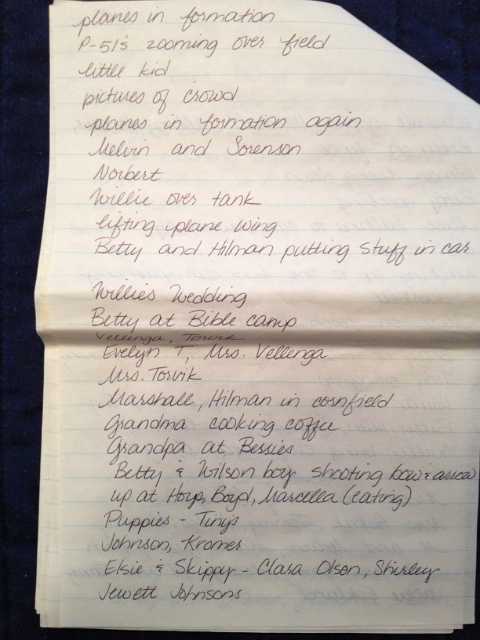 planes in formation
P-51's zooming over field
little kid
pictures of crowd
planes in formation again
Melvin and Sorenson
Norbert
Willie over tank
lifting plane wing
Betty and Hilman putting stuff in car
Willies Wedding
Betty at Bible camp
Vellenga, Torvik
Evelyn T, Mrs. Vellenga
Mrs. Torvik
Marshall, Hilman in cornfield
Grandma cooking coffee
Grandpa at Bessies
Betty & Wilson boy shooting bow & arrow
up at Hoyp, Boyd, Marcella (eating)
Puppies - Tinys
Johnson, Kromes
Elsie & Skippy - Clara Olson, Shirley
Jewett Johnsons